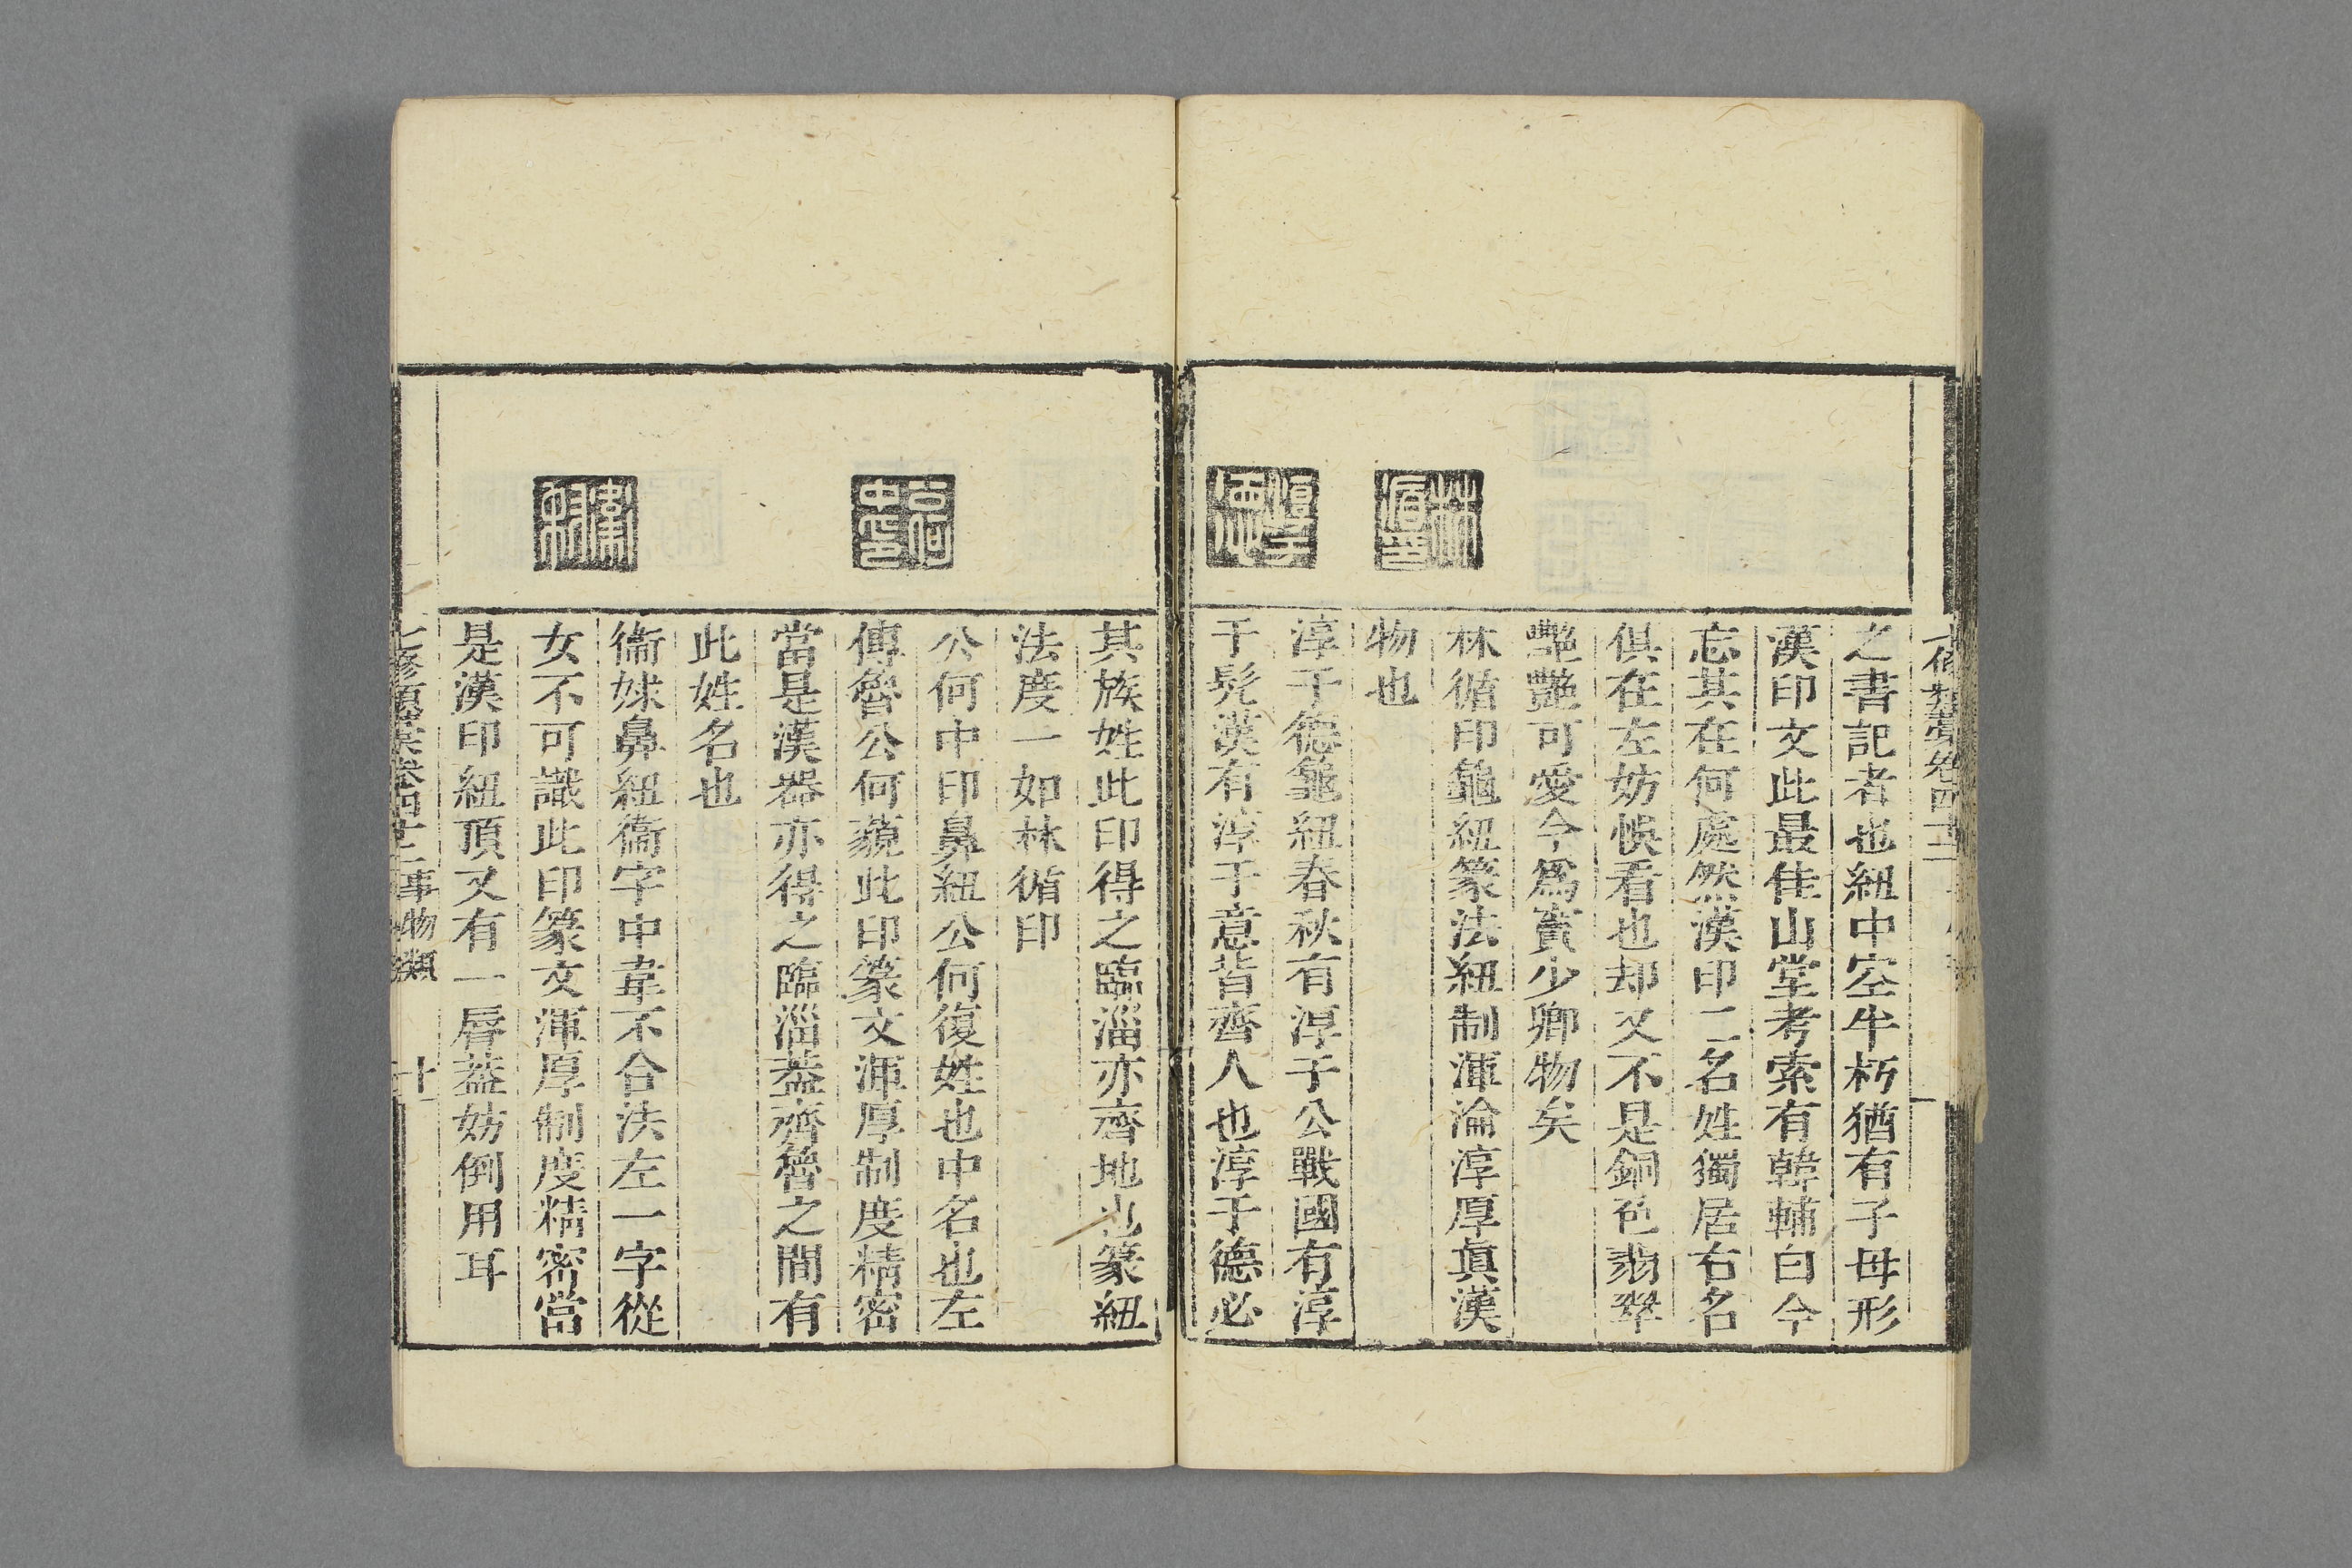 之書記者也紐中空牛朽猶有子母形
漢印文此最佳山堂考索有韓輔白今
忘其在何處然漢印二名姓獨居右名
俱在左妨悞看也却又不是銅色翡翠
艷艷可愛今爲竇少卿物矣
林循印龜紐篆法紐制渾淪淳厚眞漢
物也
淳于德龜紐春秋有淳于公戰國有淳
于髡漢有淳于意皆齊人也淳于德必
其族姓此印得之臨淄亦齊地也篆紐
法度一如林循印
公何中印鼻紐公何復姓也中名也左
傳魯公何藐此印篆文渾厚制度精密
當是漢器亦得之臨淄葢齊魯之間有
此姓名也
衞妹鼻紐衞字中韋不合法左一字從
女不可識此印篆文渾厚制度精密當
是漢印紐頂又有一唇葢妨倒用耳
七修類稾卷四十二 事物類 十一